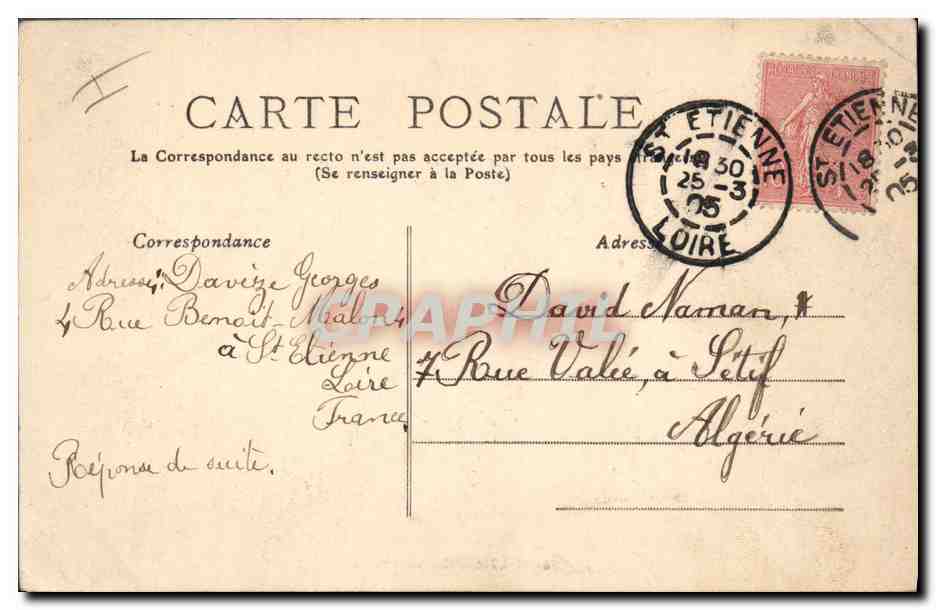 I
CARTE POSTALE
La Correspondance au recto n'est pas acceptée par tous les pays étrangers
(Se renseigner à la Poste)
ST ETIENNE
18 30
25 - 3
05
LOIRE
ST ETIENNE
18 30
25 - 3
05
Correspondance
Adresse: Davèze Georges
4 Rue Benoit-Malon 4
à St Etienne
Loire
France
Réponse de suite.
Adresse
David Naman,
7 Rue Valée, à Sétif
Algérie
CARAPHIL